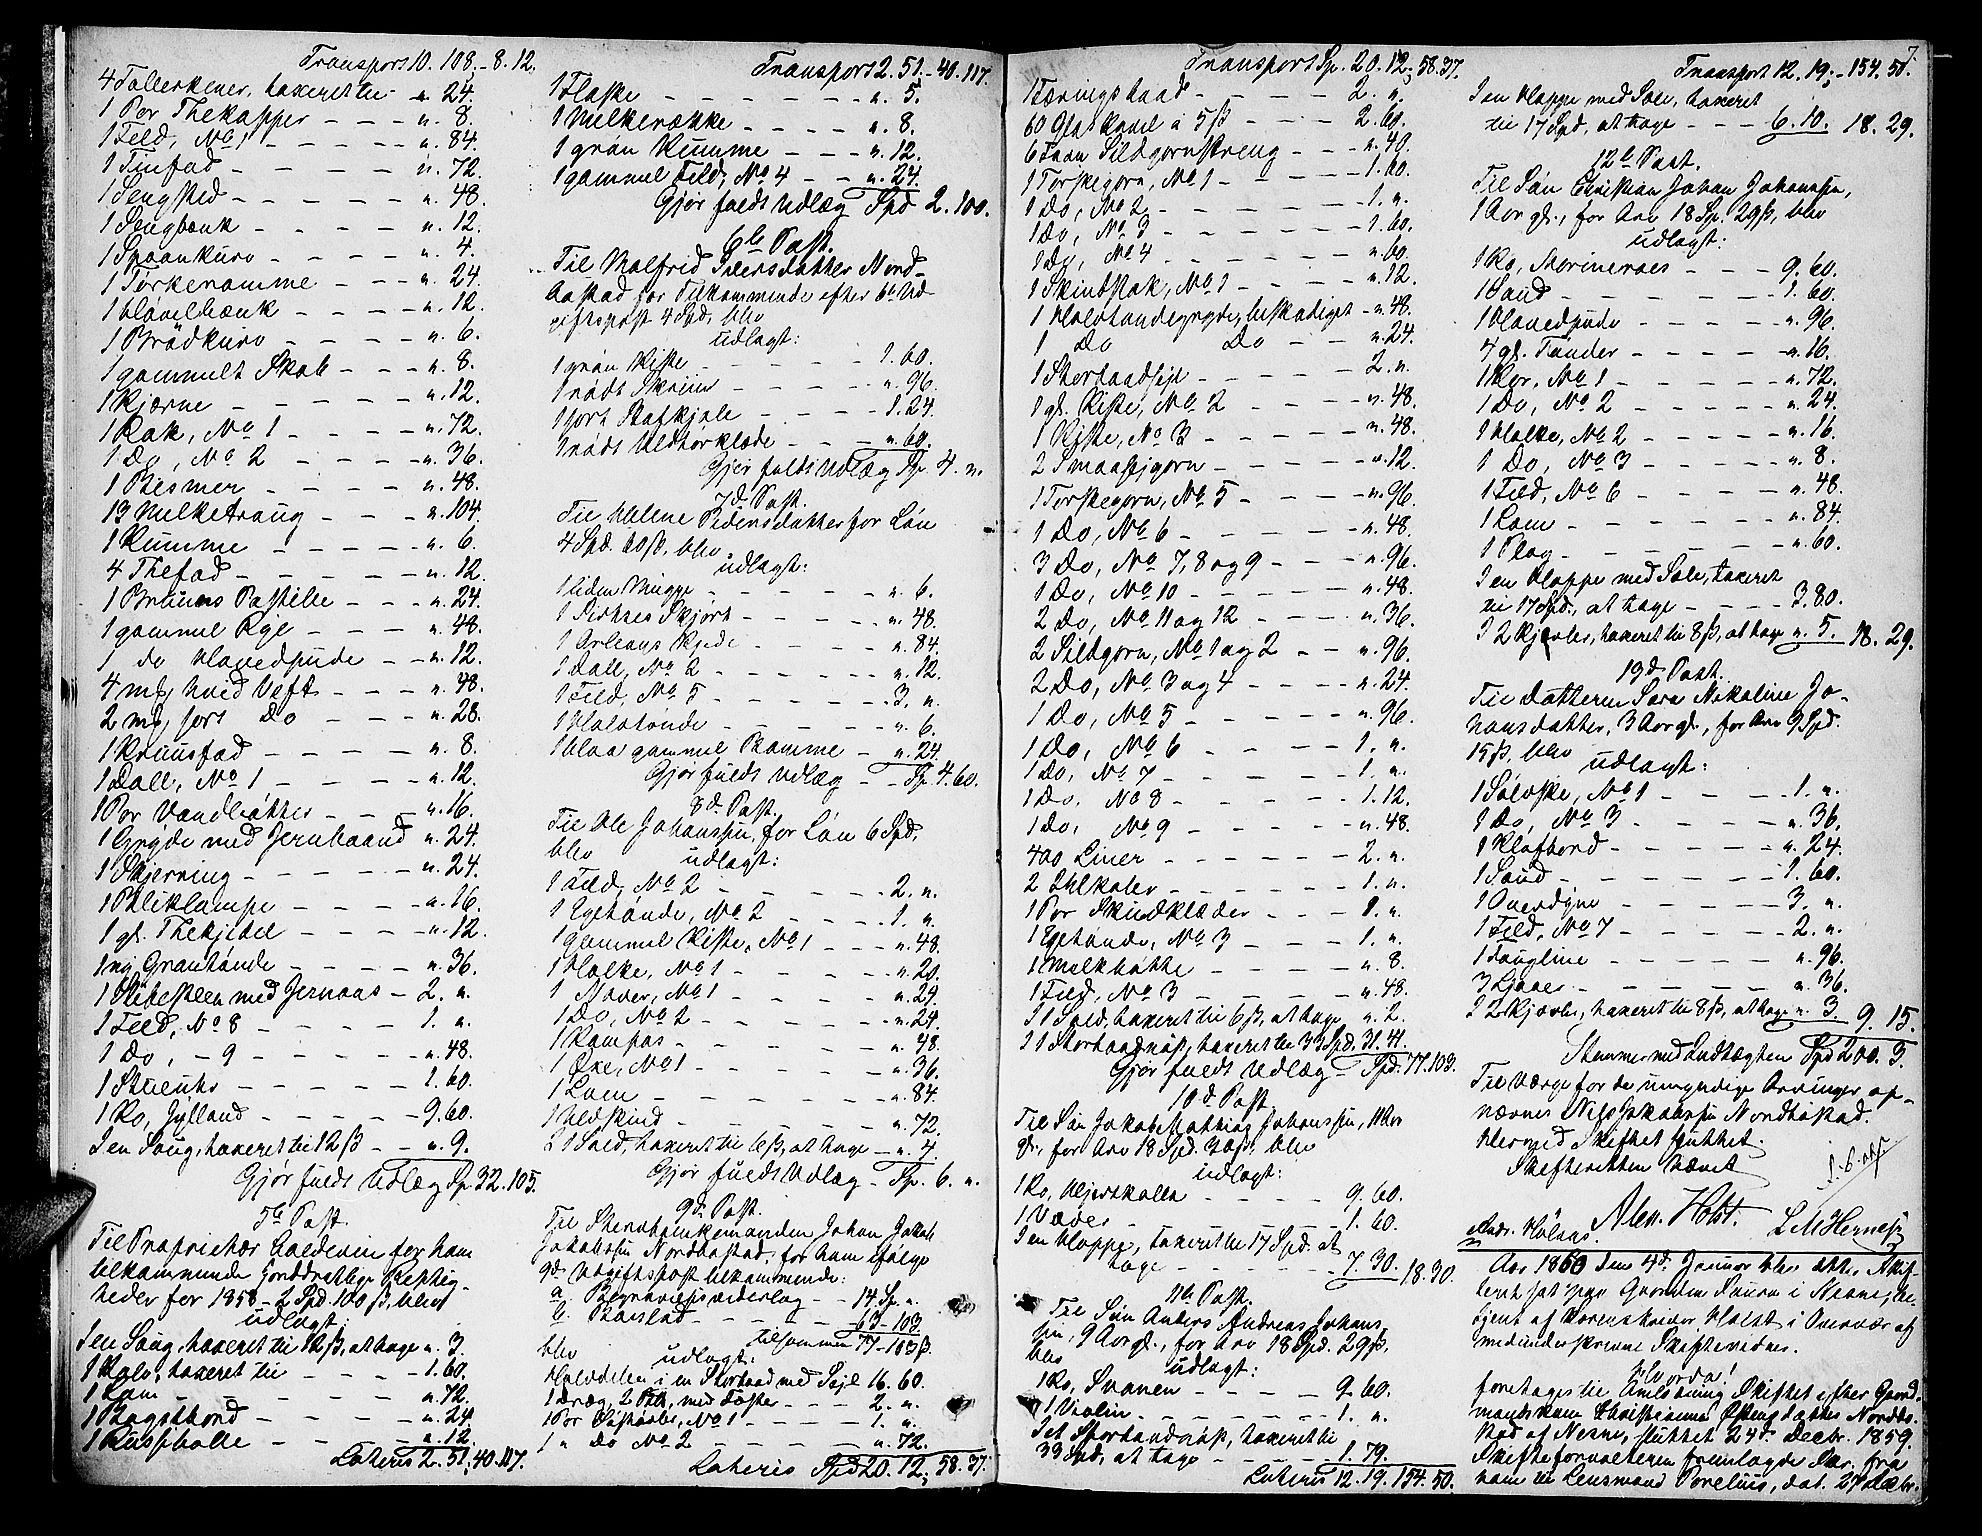 Transport 10. 108. - 8. 12.
4 Tallerkener, taxeret til - " 24.
1 Par Thekopper - - - " 8.
1 Feld, No 1 - - - - " 84.
1 Tinfad - - - - - " 72.
1 Sengsted - - - - " 48.
1 Sengbænk - - - - " 12.
1 Spaankurv - - - - " 4.
1 Tørkeramme - - - " 24.
1 Høvelbænk - - - - " 12.
1 Brødkurv - - - - " 6.
1 gammelt Skab - - - " 8.
1 Kjærne - - - - - " 12.
1 Kak, No 1 - - - - " 72.
1 Do, No 2 - - - - " 36.
1 Bismer - - - - - " 48.
13 Melketraug - - - " 104.
1 Kumme - - - - " 6.
4 Thefad - - - - - " 12.
1 Postille - - - " 24.
1 gammel Rye - - - " 48.
1 do Hovedpude - - - " 12.
4 mk hvid Veft - - - " 48.
2 mk sort Do - - - " 28.
1 Kruusfad - - - - " 8.
1 Dall, No 1 - - - - " 12.
1 Par Vandbøtter - - - " 16.
1 Gryde med Jernbaand " 24.
1 Skjerning - - - - " 24.
1 Bliklampe - - - - " 16.
1 gl. Thekjedel - - - " 12.
1 ny Grantønde - - - " 36.
1 Slibesteen med Jernaas - 2. "
1 Feld, No 8 - - - - 1. "
1 Do, - 9 - - - - " 48.
1 Stueuhr - - - - 1. 60.
1 Ko, Jylland - - - - 9. 60.
I en Saug, taxeret til 12 ß - - " 9.
Gjør fuldt Udlæg Sp. 32. 105.
5te Post.
Til Proprietær Coldevin for ham
tilkommende jorddrotlige Rettig-
heder for 1858 - 2 Spd. 100 ß, blev
udlagt:
I en Saug, taxeret til 12 ß, at tage " 3.
1 Kalv, taxeret til - - - - 1. 60.
1 Lam - - - - - " 72.
1 Bagstbord - - - - " 24.
1 - - - - " 12.
Lateris 2. 51; 40. 117.
Transport 2. 51. - 40. 117.
1 Flaske - - - - - - " 5.
1 Melkerække - - - - " 8.
1 grøn Kumme - - - " 12.
1 gammel Feld, No 4 - - " 24.
Gjør fuldt Udlæg Spd 2. 100.
6te Post.
Til Malfrid Iversdatter Nord-
bostad for Tilkommende efter 6te Ud-
giftspost 4 Spd, blev
udlagt:
1 grøn Kiste - - - - 1. 60.
1 rødt Skriin - - - - " 96.
1 sort Stofkjole - - - - 1. 24.
1 rødt Uldtørklæde - - - " 60.
Gjør fuldt Udlæg Sp. 4. "
7de Post.
Til Malene Pedersdatter for Løn
4 Spd. 60 ß, blev
udlagt:
1 liden Mugge - - - - " 6.
1 Skjørt - - - - " 48.
1 Kjole - - - - " 84.
1 Dall, No 2 - - - - " 12.
1 Feld, No 5 - - - - 3. "
1 Halvtønde - - - - " 6.
1 blaa gammel Ramme - " 24.
Gjør fuldt Udlæg - - Sp. 4. 60.
8de Post.
Til Ole Johanssen, for Løn 6 Spd,
blev udlagt:
1 Feld, No 2 - - - - 2. "
1 Egetønde, No 2 - - - - 1. "
1 gammel Kiste, No 1 - - - " 48.
1 Holke, No 1 - - - - " 20.
1 Naver, No 1 - - - - " 24.
1 Do, No 2 - - - - " 24.
1 Kompas - - - - - " 48.
1 Øxe, No 1 - - - - " 36.
1 Lam - - - - - " 84.
1 Uldskind - - - - - " 72.
I 1 Sold, taxeret til 6 ß, at tage - " 4.
Gjør fuldt Udlæg - Sp. 6. "
9de Post.
Til Sterbboenkemanden Johan Jakob
Jakobsen Nordbostad, for ham ifølge
9de Udgiftspost tilkommende:
a. Begravelsesvederlag - - 14 Sp. "
b. Boeslod - - - - - 63 - 103
tilsammen 77 - 103 ß.
blev udlagt:
Halvdelen i en Storbaad med Seil 16. 60.
1 Dræg, 2 med Toster - - - 2. "
1 Par No 1 - - - 1. "
1 " Do No 2 - - - - " 72.
Lateris Spd 20. 12; 58. 37.
Transport Sp. 20. 12; 58. 37.
1 Færingsbaad - - - - 2. "
60 Glaskavel a 5 ß - - - 2. 60.
6 Favn Sildgarnstreng - - - " 48.
1 Torskegarn, No 1 - - - - 1. 60.
1 Do, No 2 - - - - - 1. "
1 Do, No 3 - - - - - 1. 60.
1 Do, No 4 - - - - - " 60.
1 Skindstak, No 1 - - - - " 12.
1 Halvtøndegryde, beskadiget - " 48.
1 Do Do - - " 24.
1 Storbaadseil - - - - 2. "
1 gl. Kiste, No 2 - - - - " 48.
1 Kiste, No 3 - - - - " 48.
2 Smaaseigarn - - - - " 12.
1 Torskegarn, No 5 - - - - " 96.
1 Do, No 6 - - - - - " 48.
3 Do, No 7, 8 og 9 - - - - " 96.
1 Do, No 10 - - - - - " 48.
2 Do, No 11 og 12 - - - - " 36.
2 Sildgarn, No 1 og 2 - - - " 96.
2 Do, No 3 og 4 - - - - " 24.
1 Do, No 5 - - - - - " 96.
1 Do, No 6 - - - - 1. "
1 Do, No 7 - - - - 1. "
1 Do, No 8 - - - - 1. 12.
1 Do, No 9 - - - - " 48.
400 Liner - - - - - 2. "
2 Ihlkaler - - - - - 1. "
1 Par Skindklæder - - - 1. "
1 Egetønde, No 3 - - - 1. "
1 Melkbøtte - - - - - " 8.
1 Feld, No 3 - - - - - " 48.
I 1 Sold, taxeret til 6 ß, at tage " 2.
I 1 Storbaadnøst, taxeret til 33 Spd. 31. 41.
Gjør fuldt Udlæg - Spd. 77. 103.
10de Post.
Til Søn Jakob Mathias Johanssen, 11 Aar
gl., for Arv 18 Spd. 30 ß, blev
udlagt:
1 Ko, Hjertkolla - - - - 9. 60.
1 Væder - - - - - 1. 60.
I en Hoppe, taxeret til 17 Spd. at
tage - - - - - - 7. 30. 18. 30.
11te Post.
Til Søn Anders Andreas Johans-
sen, 9 Aar gl., for Arv 18 Spd. 29 ß,
blev udlagt:
1 Ko, Svanen - - - - 9. 60.
1 Violin - - - - - 1. "
I et Storbaadnøst, taxeret til
33 Spd, at tage - - - - 1. 79.
Lateris 12. 19. 154. 50.
7
Transport 12. 19; - 154. 50.
I en Hoppe med Føl, taxeret
til 17 Spd, at tage - - - 6. 10. 18. 29.
12te Post.
Til Søn Christian Johan Johanssen,
1 Aar gl., for Arv 18 Sp. 29 ß, blev
udlagt:
1 Ko, - - - 9. 60.
1 Saud - - - - - - 1. 60.
1 Hovedpude - - - - - " 96.
4 gl. Tønder - - - - - " 16.
1 Kar, No 1 - - - - - " 72.
1 Do, No 2 - - - - - " 24.
1 Holke, No 2 - - - - " 16.
1 Do, No 3 - - - - - " 8.
1 Feld, No 6 - - - - - " 48.
1 Lam - - - - - - " 84.
1 Plog - - - - - - " 60.
I en Hoppe med Føl, taxeret
til 17 Spd., at tage - - - - 3. 80.
I 2 Kjævler, taxeret til 8 ß, at tage " 5. 18. 29.
13de Post.
Til Datteren Sara Nikoline Jo-
hansdatter, 3 Aar gl., for Arv 9 Spd.
15 ß, blev udlagt:
1 Sølvske, No 1 - - - - 1. "
1 Do, No 3 - - - - - " 36.
1 Klafbord - - - - - " 24.
1 Saud - - - - - - 1. 60.
1 Overdyne - - - - - 3. "
1 Feld, No 7 - - - - - 2. "
1 Fangline - - - - - " 96.
3 Ljaaer - - - - - " 36.
I 2 Kjævler, taxeret til 8 ß, at tage " 3. 9. 15.
Stemmer med Indtægten Spd 200. 3.
Til Værge for de umyndige Arvinger op-
nævnes Nils Jakobsen Nordbostad.
Hermed Skiftet sluttet.
Skifteretten hævet
Alex. Holst.
Aar 1860 den 4de Januar blev atter Skif-
teret sat paa Gaarden Saura i Nesne, be-
tjent af Sorenskriver Holst i Overvær af
medunderskrevne Skiftevidner.
Hvorda!
foretages til Slutning Skiftet efter Gaard-
mandskone Christianna Nordbo-
stad af Nesne, sluttet 24de Decbr. 1859.
Skifteforvalteren fremlagde Skr. fra
ham til Lensmand Porelius, dat. 27 Decbr.